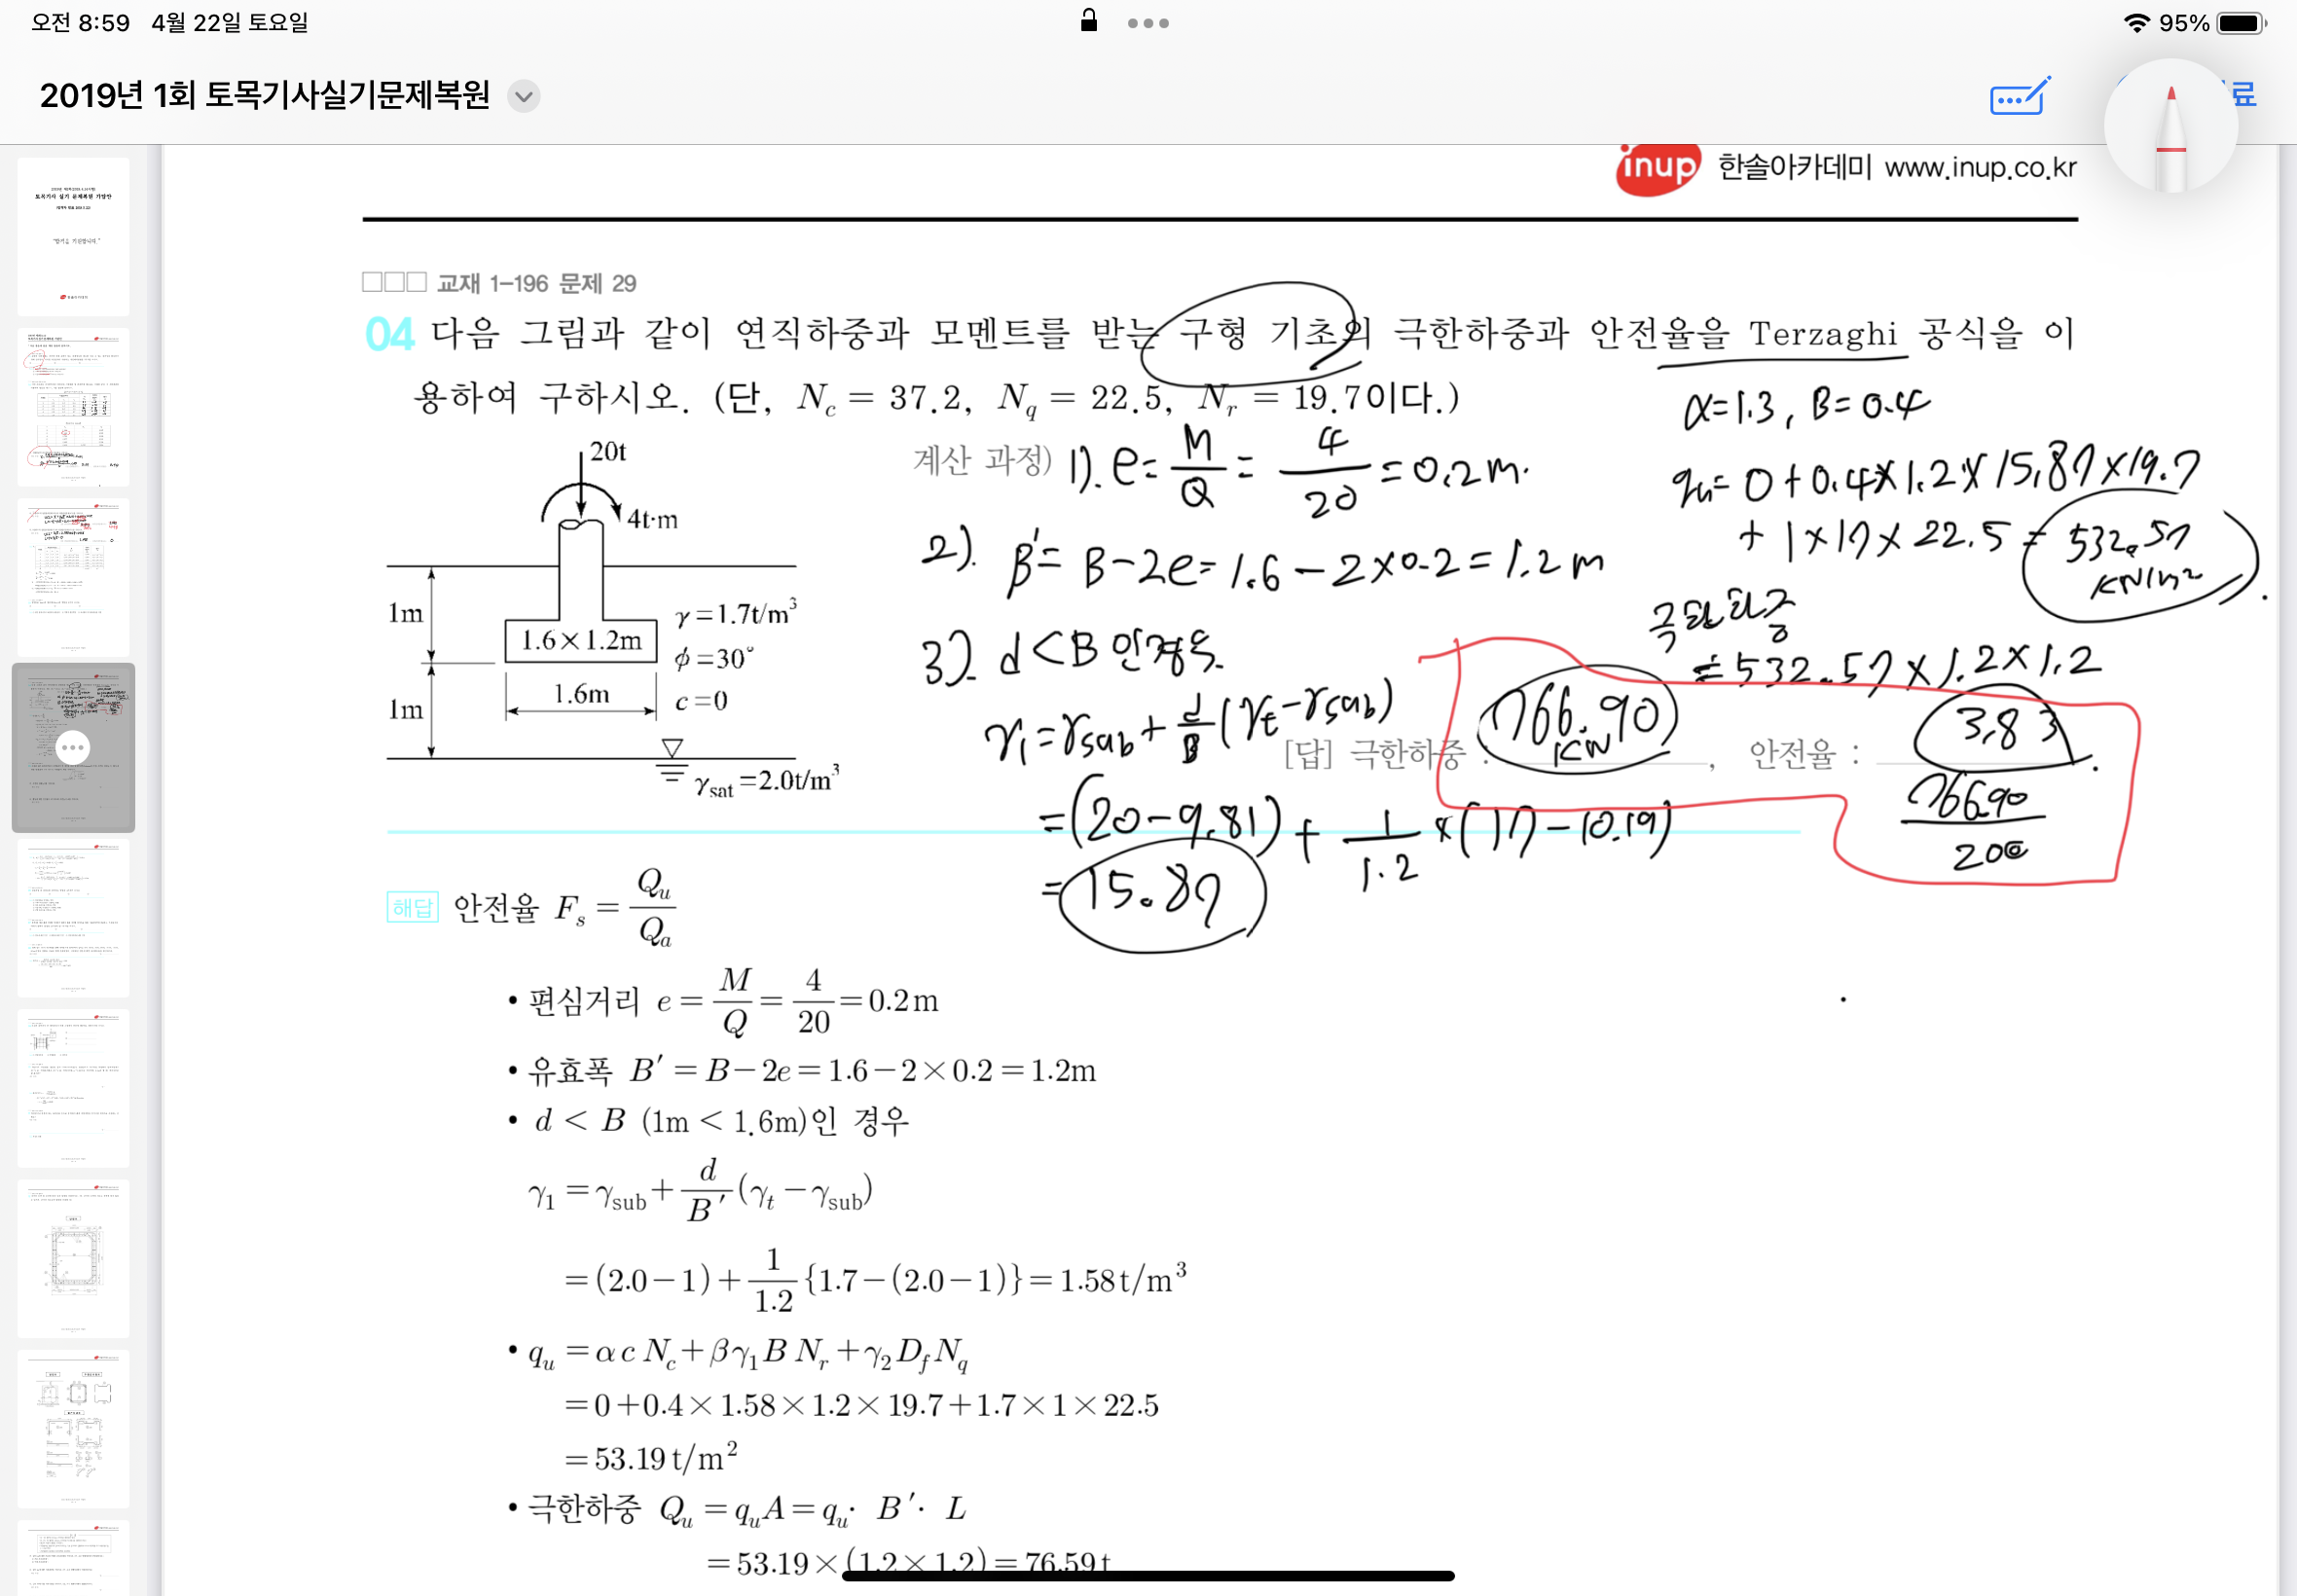 오전 8:59 4월 22일 토요일
95%
2019년 1회 토목기사실기문제복원
료
inup 한솔아카데미 www.inup.co.kr
□□□ 교재 1-196 문제 29
04 다음 그림과 같이 연직하중과 모멘트를 받는 구형 기초의 극한하중과 안전율을 Terzaghi 공식을 이
용하여 구하시오. (단, Nc = 37.2, Nq = 22.5, Nr = 19.7이다.)
α=1.3, B=0.4
20t
4t·m
1m
1.6×1.2m
γ=1.7t/m³
ϕ=30°
c=0
1.6m
1m
γsat=2.0t/m³
계산 과정) 1). e= M/Q = 4/20 = 0.2m.
2). B'= B-2e= 1.6-2×0.2=1.2m
3). d<B 인경우.
γ1=γsub+ d/B (γt-γsub)
=(20-9.81)+ 1/1.2 ×(17-10.19)
=15.87
qu= 0+0.4×1.2×15.87×19.7
+ 1×17×22.5 = 532.57
KN/m²
극한하중
=532.57×1.2×1.2
[답] 극한하중 : 766.90 KN , 안전율 : 3.83
766.90/200
해답 안전율 Fs = Qu/Qa
• 편심거리 e = M/Q = 4/20 = 0.2m
• 유효폭 B′ = B−2e = 1.6−2×0.2 = 1.2m
• d < B (1m < 1.6m)인 경우
γ1 = γsub + d/B′ (γt − γsub)
= (2.0−1) + 1/1.2 {1.7−(2.0−1)} = 1.58t/m³
• qu = αcNc + βγ1BNr + γ2DfNq
= 0+0.4×1.58×1.2×19.7+1.7×1×22.5
= 53.19t/m²
• 극한하중 Qu = quA = qu· B′· L
= 53.19×(1.2×1.2) = 76.59t